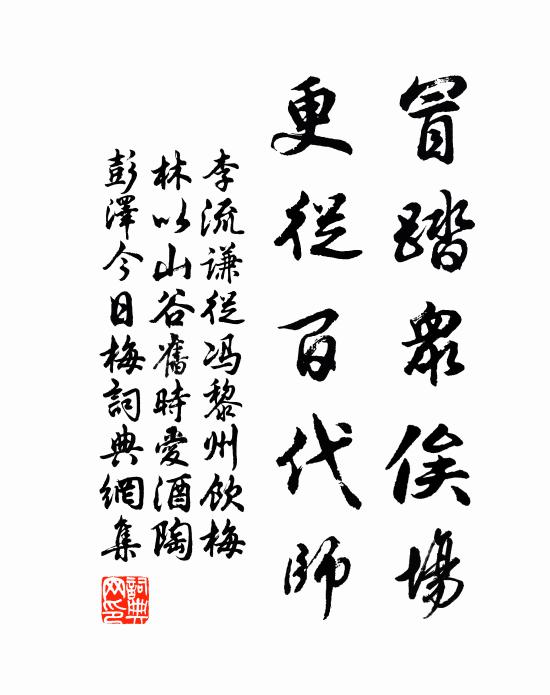 冒踏眾俟場
更從百代師
李流謙從馮黎州飲梅
林以山谷舊時愛酒陶
彭澤今日梅詞典網集
詞典
网印